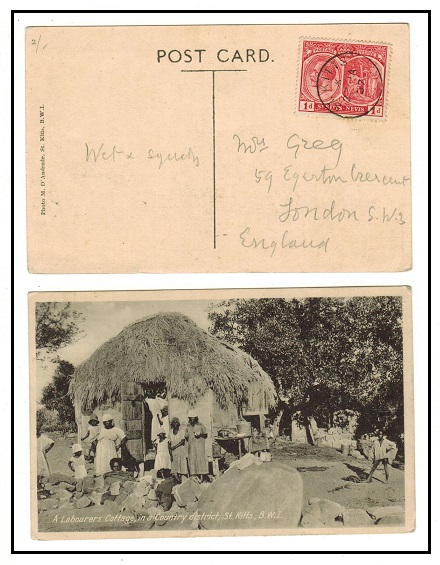 2/-
POST CARD.
POSTAGE REVENUE
1d ST KITTS-NEVIS 1d
Photo M. D'Andrade, St. Kitts, B.W.I.
Wet &
Mrs Greg
59 Egerton Crescent
London S.W.3
England
A Labourers Cottage, in a Country district, St. Kitts, B.W.I.